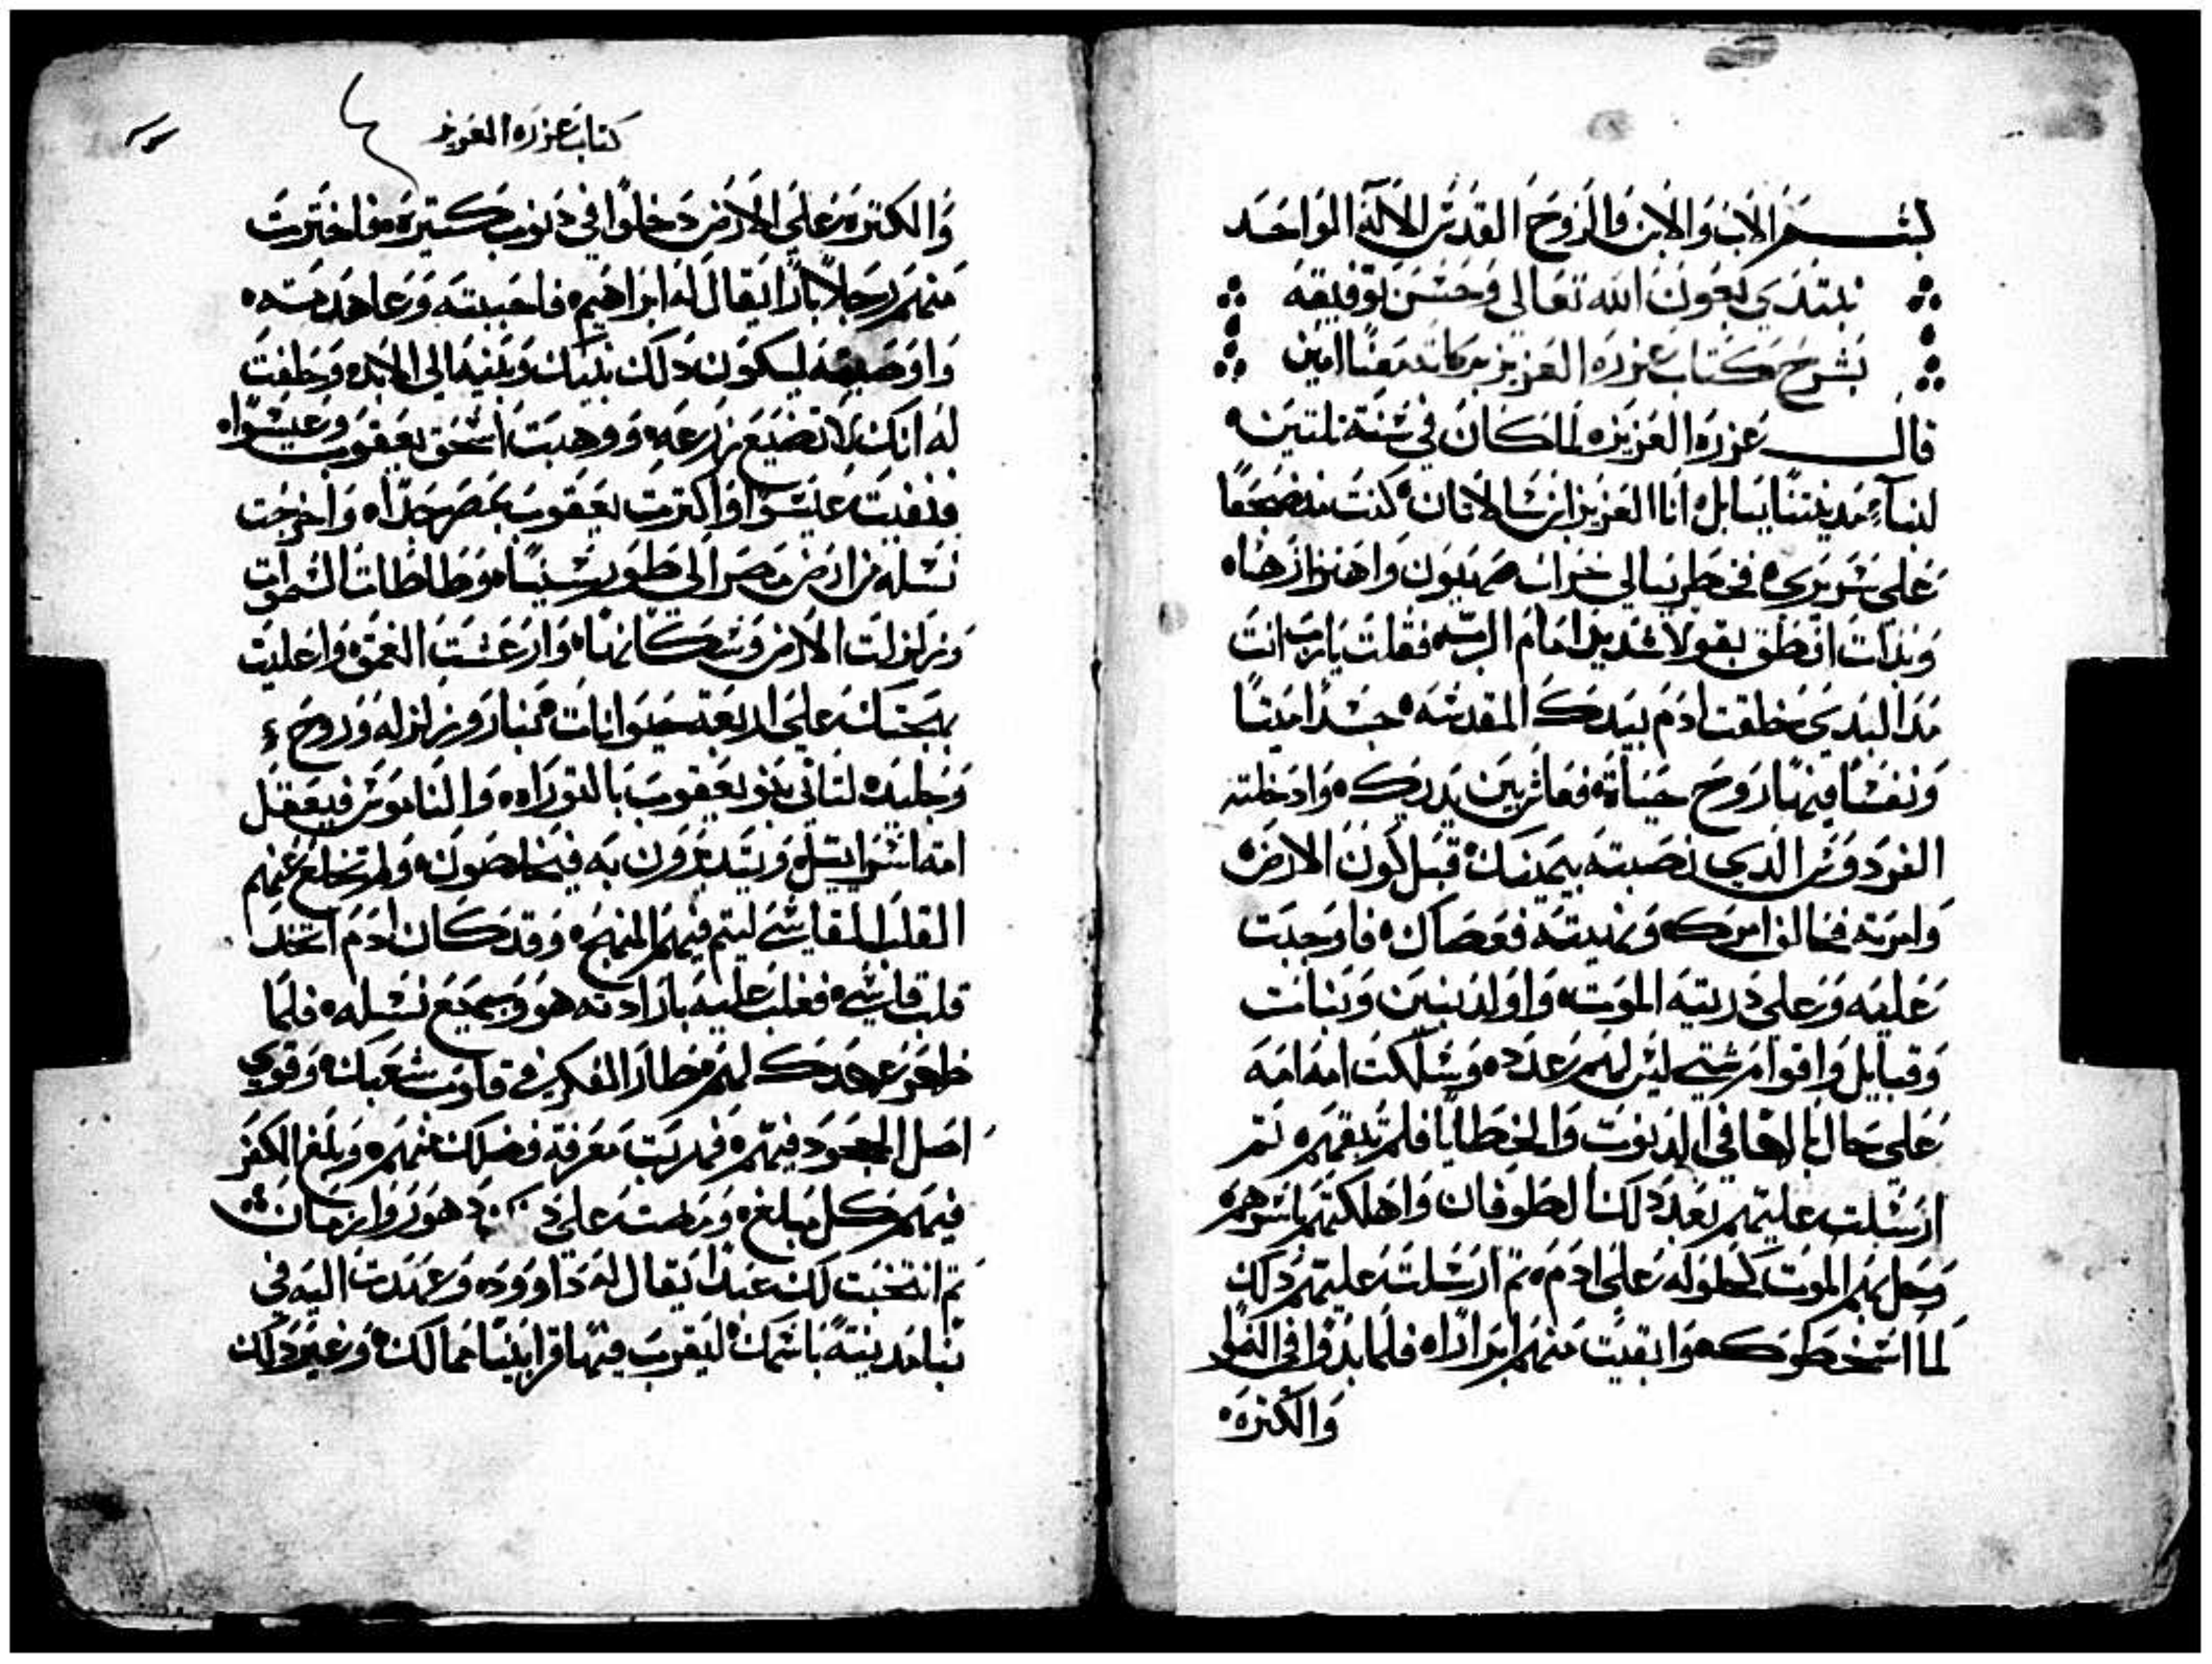 بسم الاب والابن والروح القدس الاله الواحد
نبتدي بعون الله تعالي وحسن توفيقه
بشرح كتاب عزره العزيز بركاته معنا امين
قال عزره العزيز لما كان في سنة تلتين
لنسآء مدينتنا ببابل انا العزيز ابن شالاتان كنت منضجعا
علي سريري فخطر ببالي خراب صهيون واهتزازها
وبدات انطق بقول شديد امام الرب فقلت يارب انت
مدا البدي خلقت ادم بيدك المقدسه جسدا ميتا
ونفسا فيها روح حياة فعاش بين يديك وادخلته
الفردوس الدي نصبته بيمينك قبل كون الارض
وامرته فخالف امرك ونهيته فعصاك فاوجبت
عليه وعلي دريته الموت واولد بنين وبنات
وقبايل واقوام شتي ليس لهم عدد وسلكت امه امه
علي حال بالها في الدنوب والخطايا فلم تبقهم تم
ارسلت عليهم بعد دلك الطوفان واهلكتهم باسرهم
وحل بهم الموت كحلوله علي ادم تم ارسلته عليهم دلك
لما اسخطوك وابقيت منهم ابرارا فلما بدوا في النمو
والكتره
كتاب عزره العزيز
والكتره علي الارض دخلوا في دنوب كتيره فاخترت
منهم رجلا بارا يقال له ابراهيم فاحببته وعاهدته
واوصيته ليكون دلك بينك وبنيه الي الابد وحلفت
له انك لا تضيع زرعه ووهبت اسحق يعقوب وعيسوا
فنفيت عيسوا واكترت يعقوب بمصر جدا واخرجت
نسله من ارض مصر الي طور سينا وطاطات السموات
وزلزلت الارض وسكانها وارعشت الغمق واعليت
بهجتك علي اربعة حيوانات بنار وزلزله وروح
وجليد لتاتي بنو يعقوب بالتوراه والناموس فيعقل
امة اسراييل ويتدبرون به فيخلصون ولم تخلع عنهم
القلب القاسي ليتم فيهم المنهج وقد كان ادم اتخد
قلب قاسي فغلب عليه بارادته هو وجميع نسله فلما
ظهر عهدك لهم طار الفكر في قلوب شعبك وقوي
اصل الجحود فيهم فهربت معرفة فضلك عنهم وبلغ الكفر
فيهم كل مبلغ ومضت علي دهور وازمان
تم انتخبت لك عبدا يقال له داوود وعهدت اليه في
بنا مدينة باسمك ليقرب فيها قرابينا مما لك وغير دلك